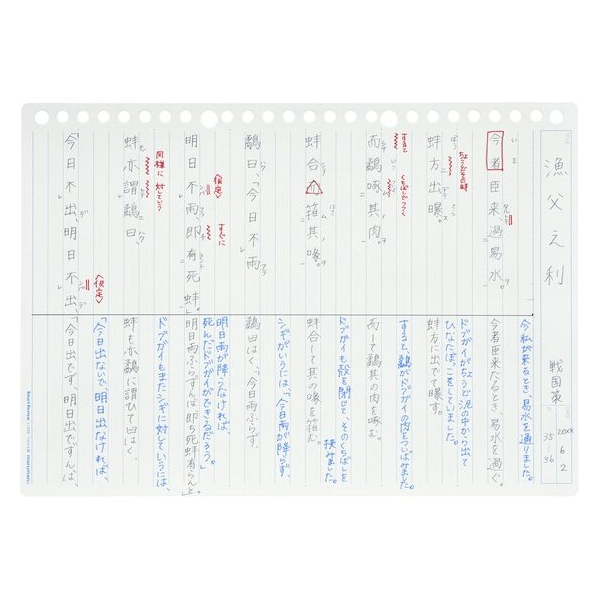 漁父之利
戦国策
20XX 6 2
35〜36
今者臣来過易水。
いま
蚌方出曝。
ちょうどその時
而鷸啄其肉。
すると
くちばしでつつく
蚌合而箝其喙。
鷸曰「今日不雨
明日不雨、即有死蚌」
〈仮定〉
すぐに
蚌亦謂鷸曰、
同様に
対していう
「今日不出、明日不出、
〈仮定〉
今私が来るとき、易水を通りました。
今者臣来たるとき、易水を過ぐ。
ドブガイがちょうど泥の中から出て
ひなたぼっこをしていました。
蚌方に出でて曝す。
すると、鷸がドブガイの肉をついばみました。
而して鷸其の肉を啄む。
ドブガイも殻を閉じて、そのくちばしを
挟みました。
蚌合して其の喙を箝む。
シギがいうには、「今日雨が降らず、
鷸曰はく、「今日雨ふらず、
明日雨が降らなければ、
死んだドブガイができるだろう。」
明日雨ふらずんば即ち死蚌有らんと。
ドブガイもまたシギに対していうには、
蚌も亦鷸に謂ひて曰はく、
「今日出ないで、明日出なければ、
「今日出でず、明日出でずんば、